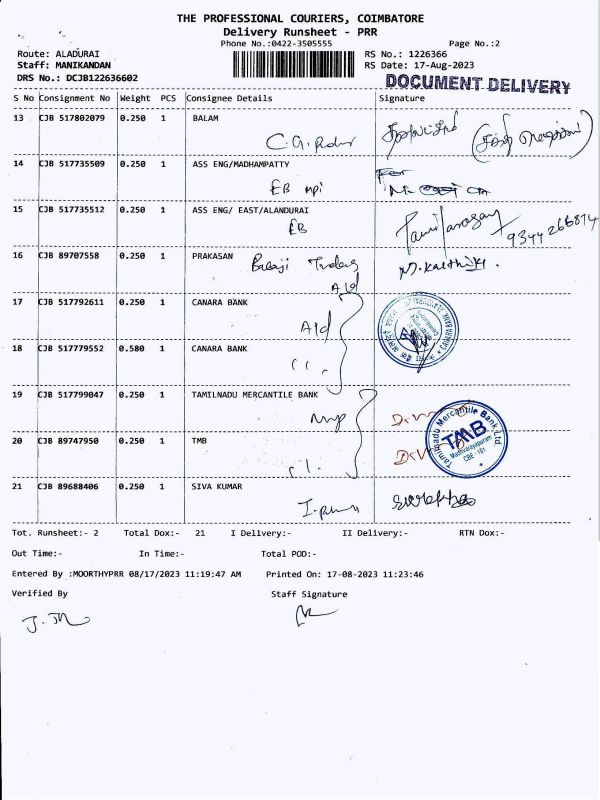 THE PROFESSIONAL COURIERS, COIMBATORE
Delivery Runsheet - PRR
Phone No.:0422-3505555 Page No.:2
Route: ALADURAI RS No.: 1226366
Staff: MANIKANDAN RS Date: 17-Aug-2023
DRS No.: DCJB122636602
DOCUMENT DELIVERY
S No Consignment No Weight PCS Consignee Details Signature
13 CJB 517802079 0.250 1 BALAM
14 CJB 517735509 0.250 1 ASS ENG/MADHAMPATTY
For
EB
15 CJB 517735512 0.250 1 ASS ENG/ EAST/ALANDURAI
EB
9344266814
16 CJB 89707558 0.250 1 PRAKASAN Balaji
M.Karthik
Ald
17 CJB 517792611 0.250 1 CANARA BANK
Ald
CANARA BANK
18 CJB 517779552 0.580 1 CANARA BANK
19 CJB 517799047 0.250 1 TAMILNADU MERCANTILE BANK
Tamilnadu Mercantile Bank Ltd
TMB
Madhvarayapuram
CBE - 101
20 CJB 89747950 0.250 1 TMB
21 CJB 89688406 0.250 1 SIVA KUMAR
Tot. Runsheet:- 2 Total Dox:- 21 I Delivery:- II Delivery:- RTN Dox:-
Out Time:- In Time:- Total POD:-
Entered By :MOORTHYPRR 08/17/2023 11:19:47 AM Printed On: 17-08-2023 11:23:46
Verified By Staff Signature